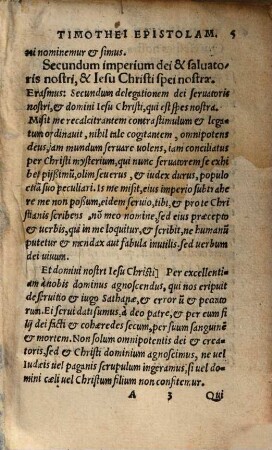 TIMOTHEI EPISTOLAM. 5
ni nominemur & simus.
Secundum imperium dei & saluato
ris nostri, & Iesu Christi spei nostræ.
Erasmus: Secundum delegationem dei seruatoris
nostri, & domini Iesu Christi, qui est spes nostra.
Misit me recalcitrantem contra stimulum & lega
tum ordinauit, nihil tale cogitantem, omnipotens
deus, iam mundum seruare uolens, iam conciliatus
per Christi mysterium, qui nunc seruatorem se exhi
bet pijssimũ, olim seuerus, & iudex durus, populo
etiã suo peculiari. Is me misit, eius imperio subtrahe
re me non possum, eidem seruio, tibi, & pro te Chri
stianis scribens, nõ meo nomine, sed eius præcepto
& uerbis, qui in me loquitur, & scribit, ne humanũ
putetur & mendax aut fabula inutilis. sed uerbum
dei uiuum.
Et domini nostri Iesu Christi] Per excellenti
am à nobis dominus agnoscendus, qui nos eripuit
de seruitio & iugo Sathanæ, & errorũ & peccato
rum. Ei serui dati sumus, à deo patre, & per eum fi
lij dei facti & cohæredes secum, per suum sanguinẽ
& mortem. Non solum omnipotentis dei & crea
toris, sed & Christi dominium agnoscimus, ne uel
Iudæis uel paganis serupulum ingeramus, si uel do
mini cæli uel Christum filium non confitemur.
A 3 Qui